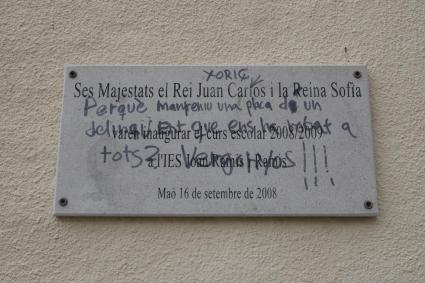 XORIÇ
Ses Majestats el Rei Juan Carlos i la Reina Sofía
Perquè manteniu una placa de un
varen inaugurar el curs escolar 2008/2009
delinqüent que ens ha robat a
a l'IES Joan Ramis i Ramis
tots?
!!!
Maó 16 de setembre de 2008